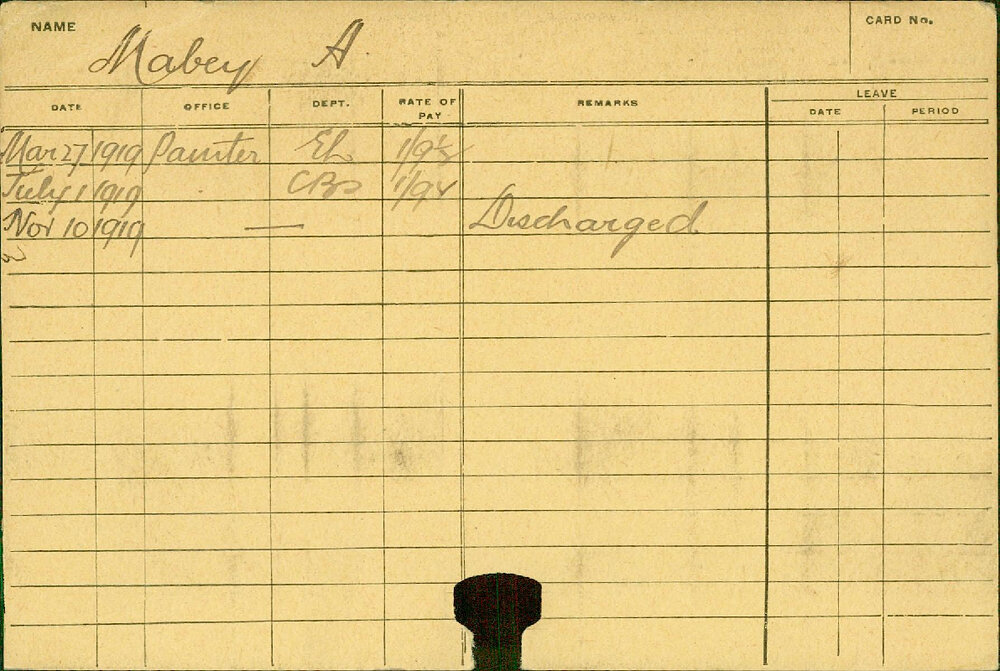 NAME Mabey A CARD No.
DATE OFFICE DEPT. RATE OF PAY REMARKS LEAVE
DATE PERIOD
Mar 27 1919 Painter EL 1/9½
July 1 1919 1/9¼
Nov 10 1919 — Discharged